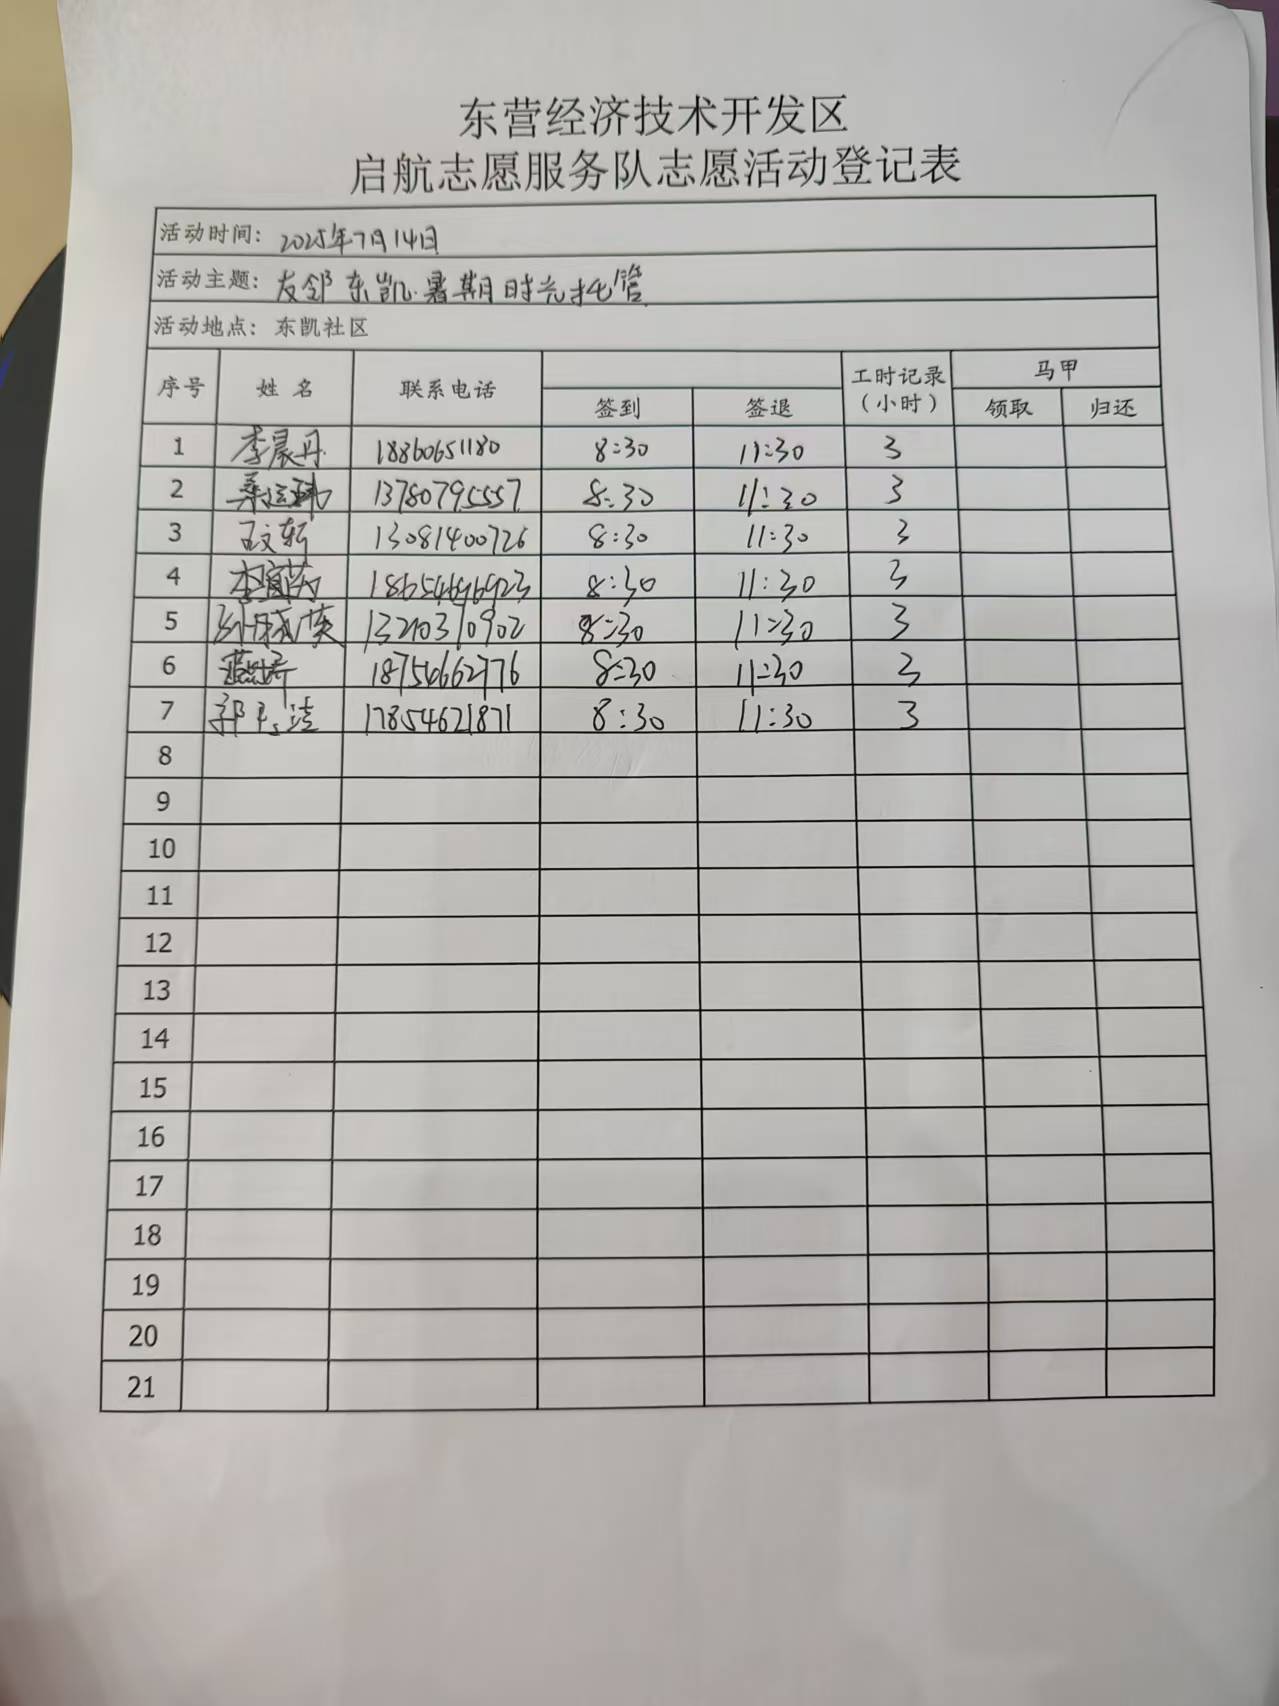 东营经济技术开发区
启航志愿服务队志愿活动登记表
活动时间: 2025年7月14日
活动主题: 友邻东凯暑期时光托管
活动地点: 东凯社区
序号 姓名 联系电话 签到 签退 工时记录(小时) 马甲 领取 归还
1 李晨丹 18860651180 8:30 11:30 3
2 13780795557 8:30 11:30 3
3 王文轩 13081400726 8:30 11:30 3
4 18654696923 8:30 11:30 3
5 13210370902 8:30 11:30 3
6 18754662776 8:30 11:30 3
7 17854621871 8:30 11:30 3
8
9
10
11
12
13
14
15
16
17
18
19
20
21